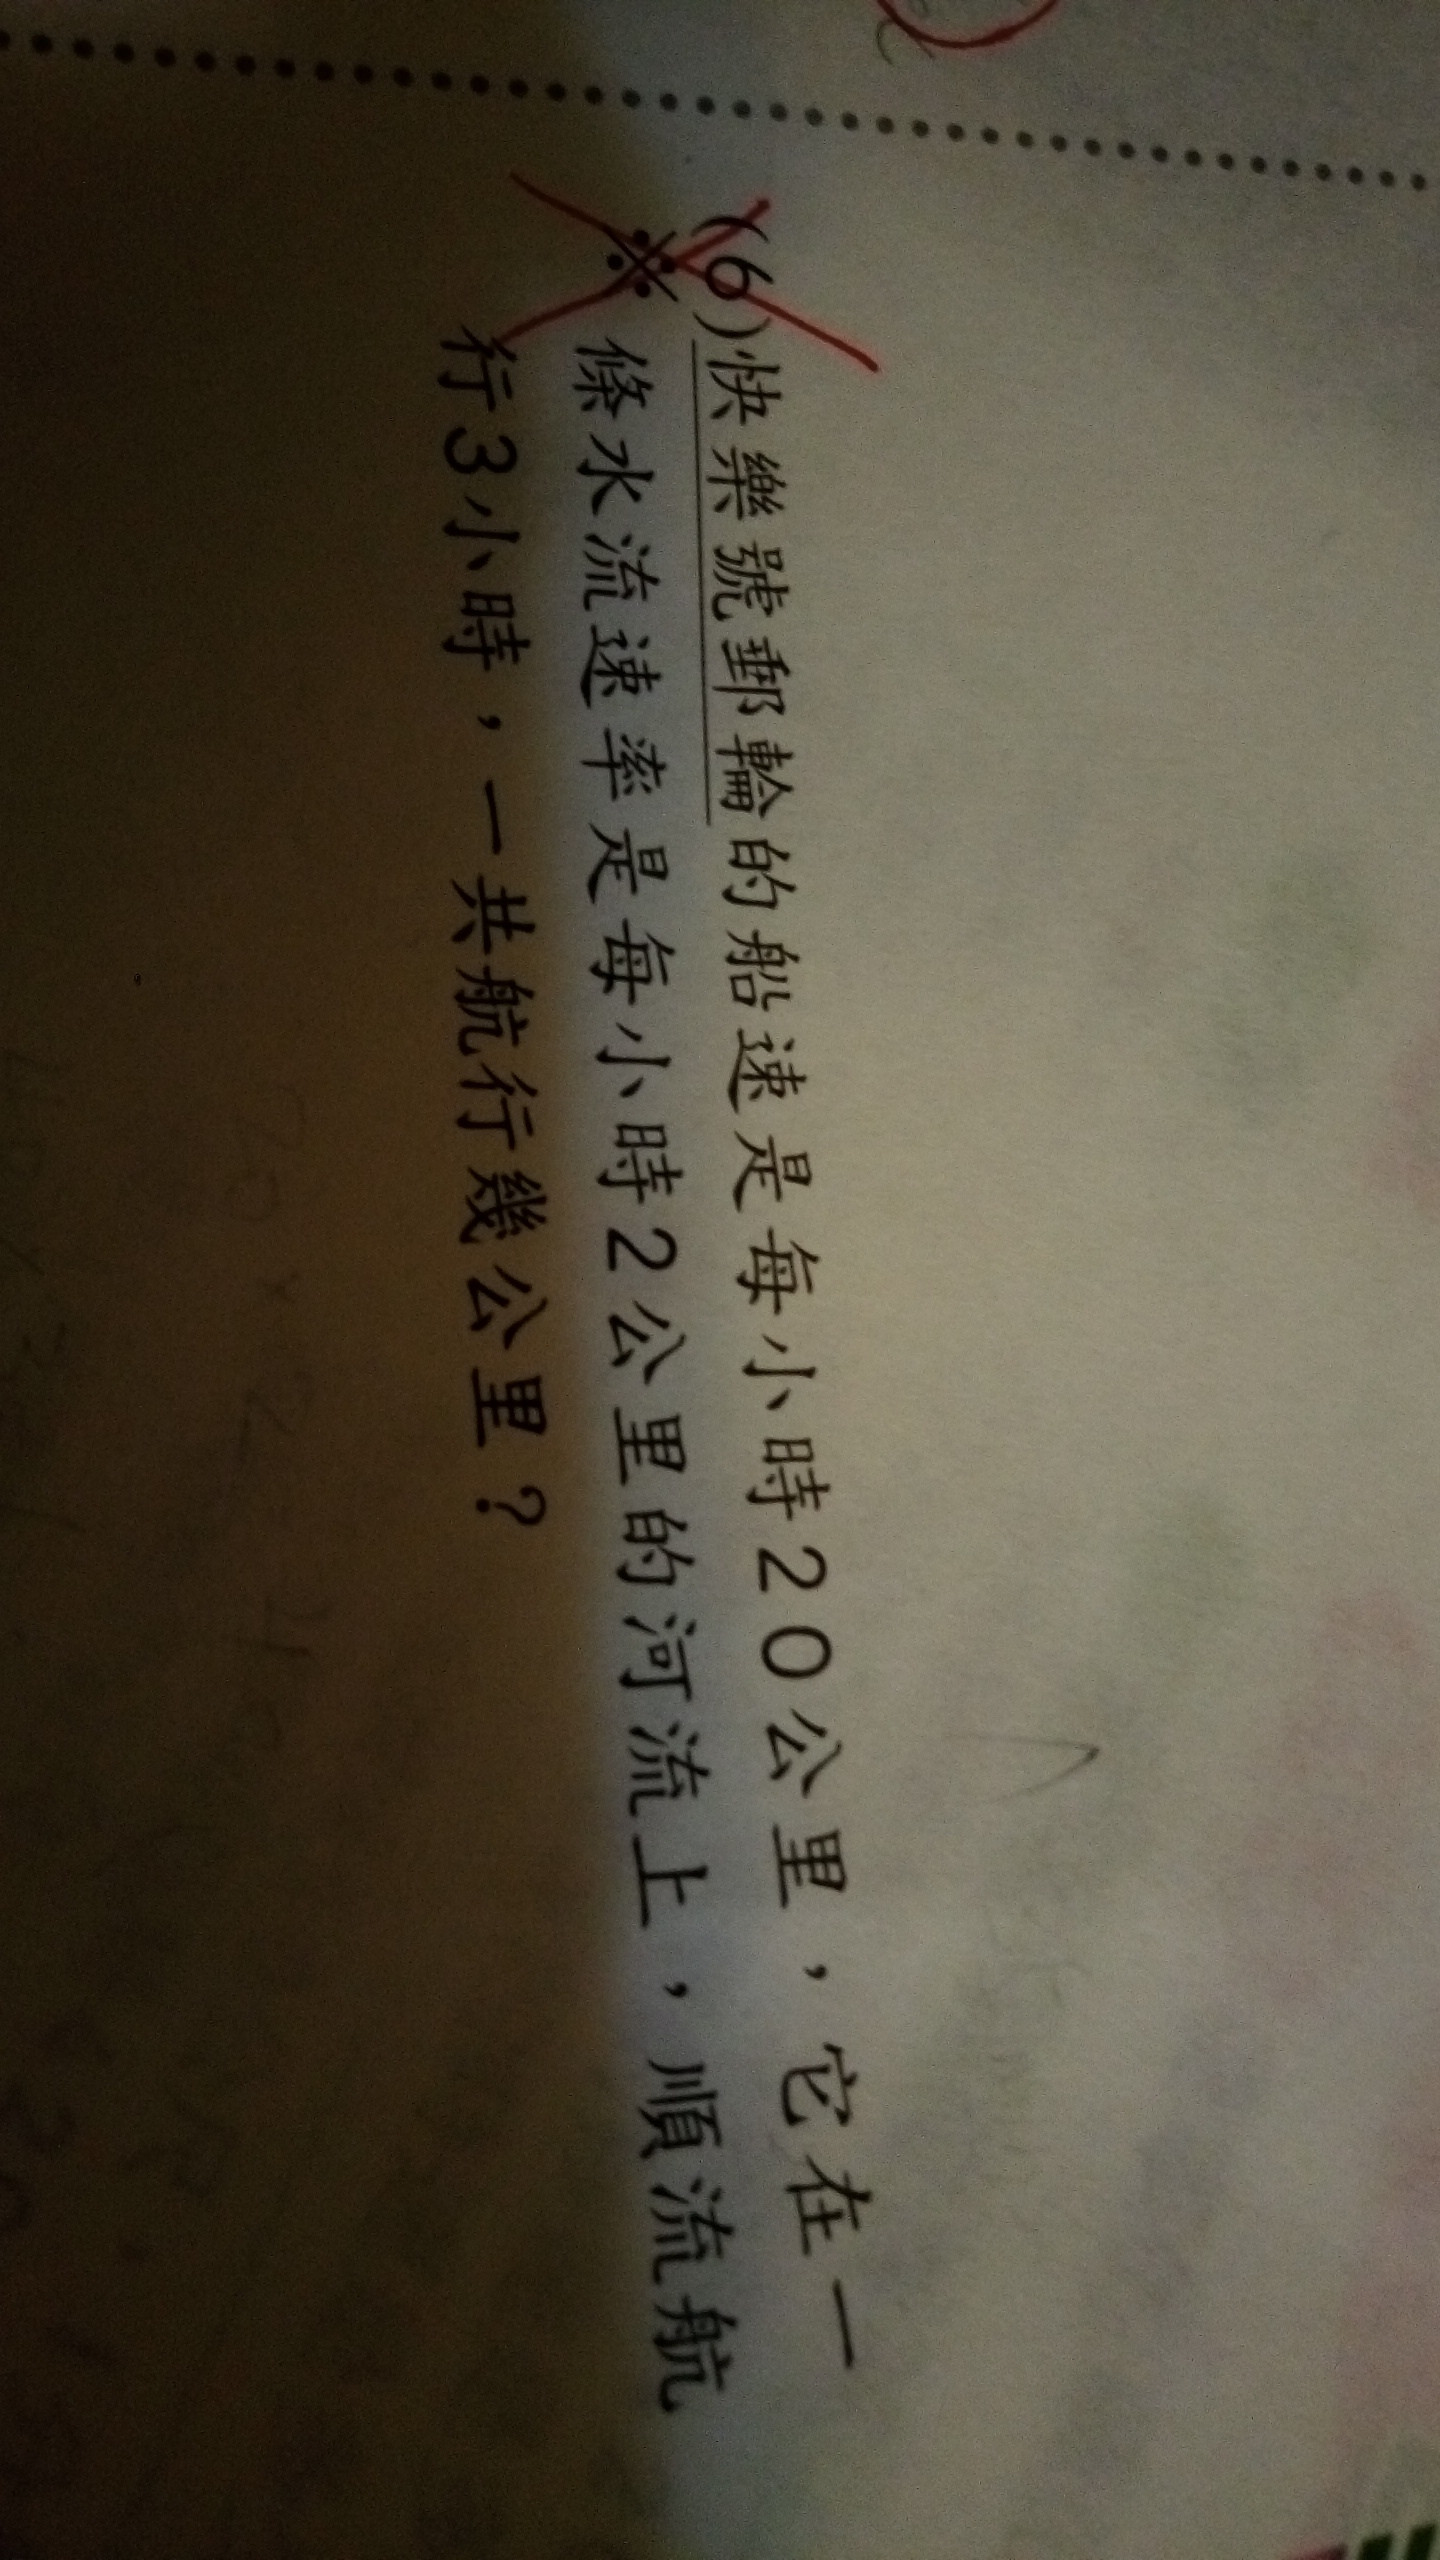 (6)快樂號郵輪的船速是每小時20公里，它在一
※條水流速率是每小時2公里的河流上，順流航
行3小時，一共航行幾公里？